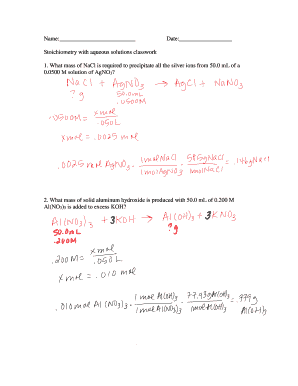 Name:____________________ Date:______________
Stoichiometry with aqueous solutions classwork
1. What mass of NaCl is required to precipitate all the silver ions from 50.0 mL of a
0.0500 M solution of AgNO3?
NaCl + AgNO3 → AgCl + NaNO3
? g 50.0mL
.0500M
.0500M = x mol / .050L
x mol = .0025 mol
.0025 mol AgNO3 · 1 mol NaCl / 1 mol AgNO3 · 58.5g NaCl / 1 mol NaCl = .146g NaCl
2. What mass of solid aluminum hydroxide is produced with 50.0 mL of 0.200 M
Al(NO3)3 is added to excess KOH?
Al(NO3)3 + 3KOH → Al(OH)3 + 3KNO3
50.0mL ? g
.200M
.200M = x mol / .050L
x mol = .010 mol
.010 mol Al(NO3)3 · 1 mol Al(OH)3 / 1 mol Al(NO3)3 · 77.98g Al(OH)3 / 1 mol Al(OH)3 = .779g
Al(OH)3